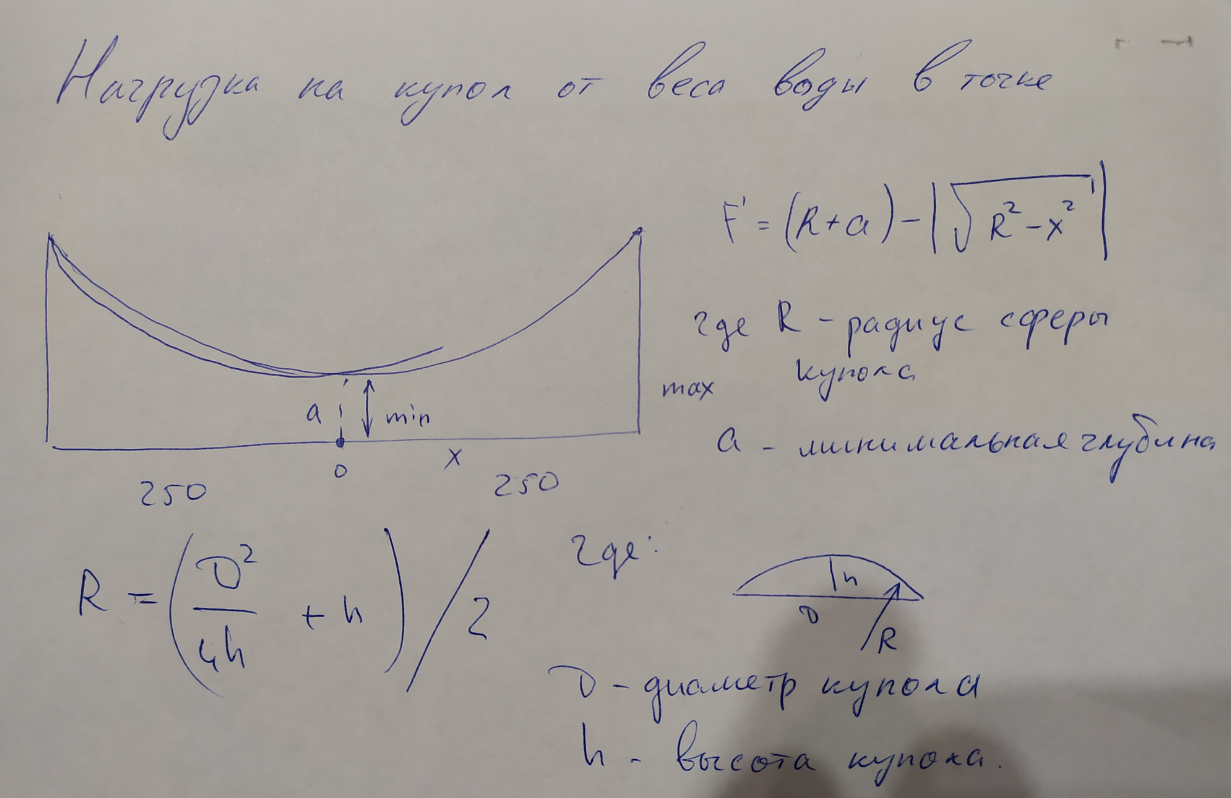 Нагрузка на купол от веса воды в точке
F' = (R+a) - |√(R² - x²)|
где R - радиус сферы
купола
max
a - минимальная глубина
a
min
0
x
250
250
R = (D²/4h + h) / 2
где:
h
D
R
D - диаметр купола
h - высота купола.